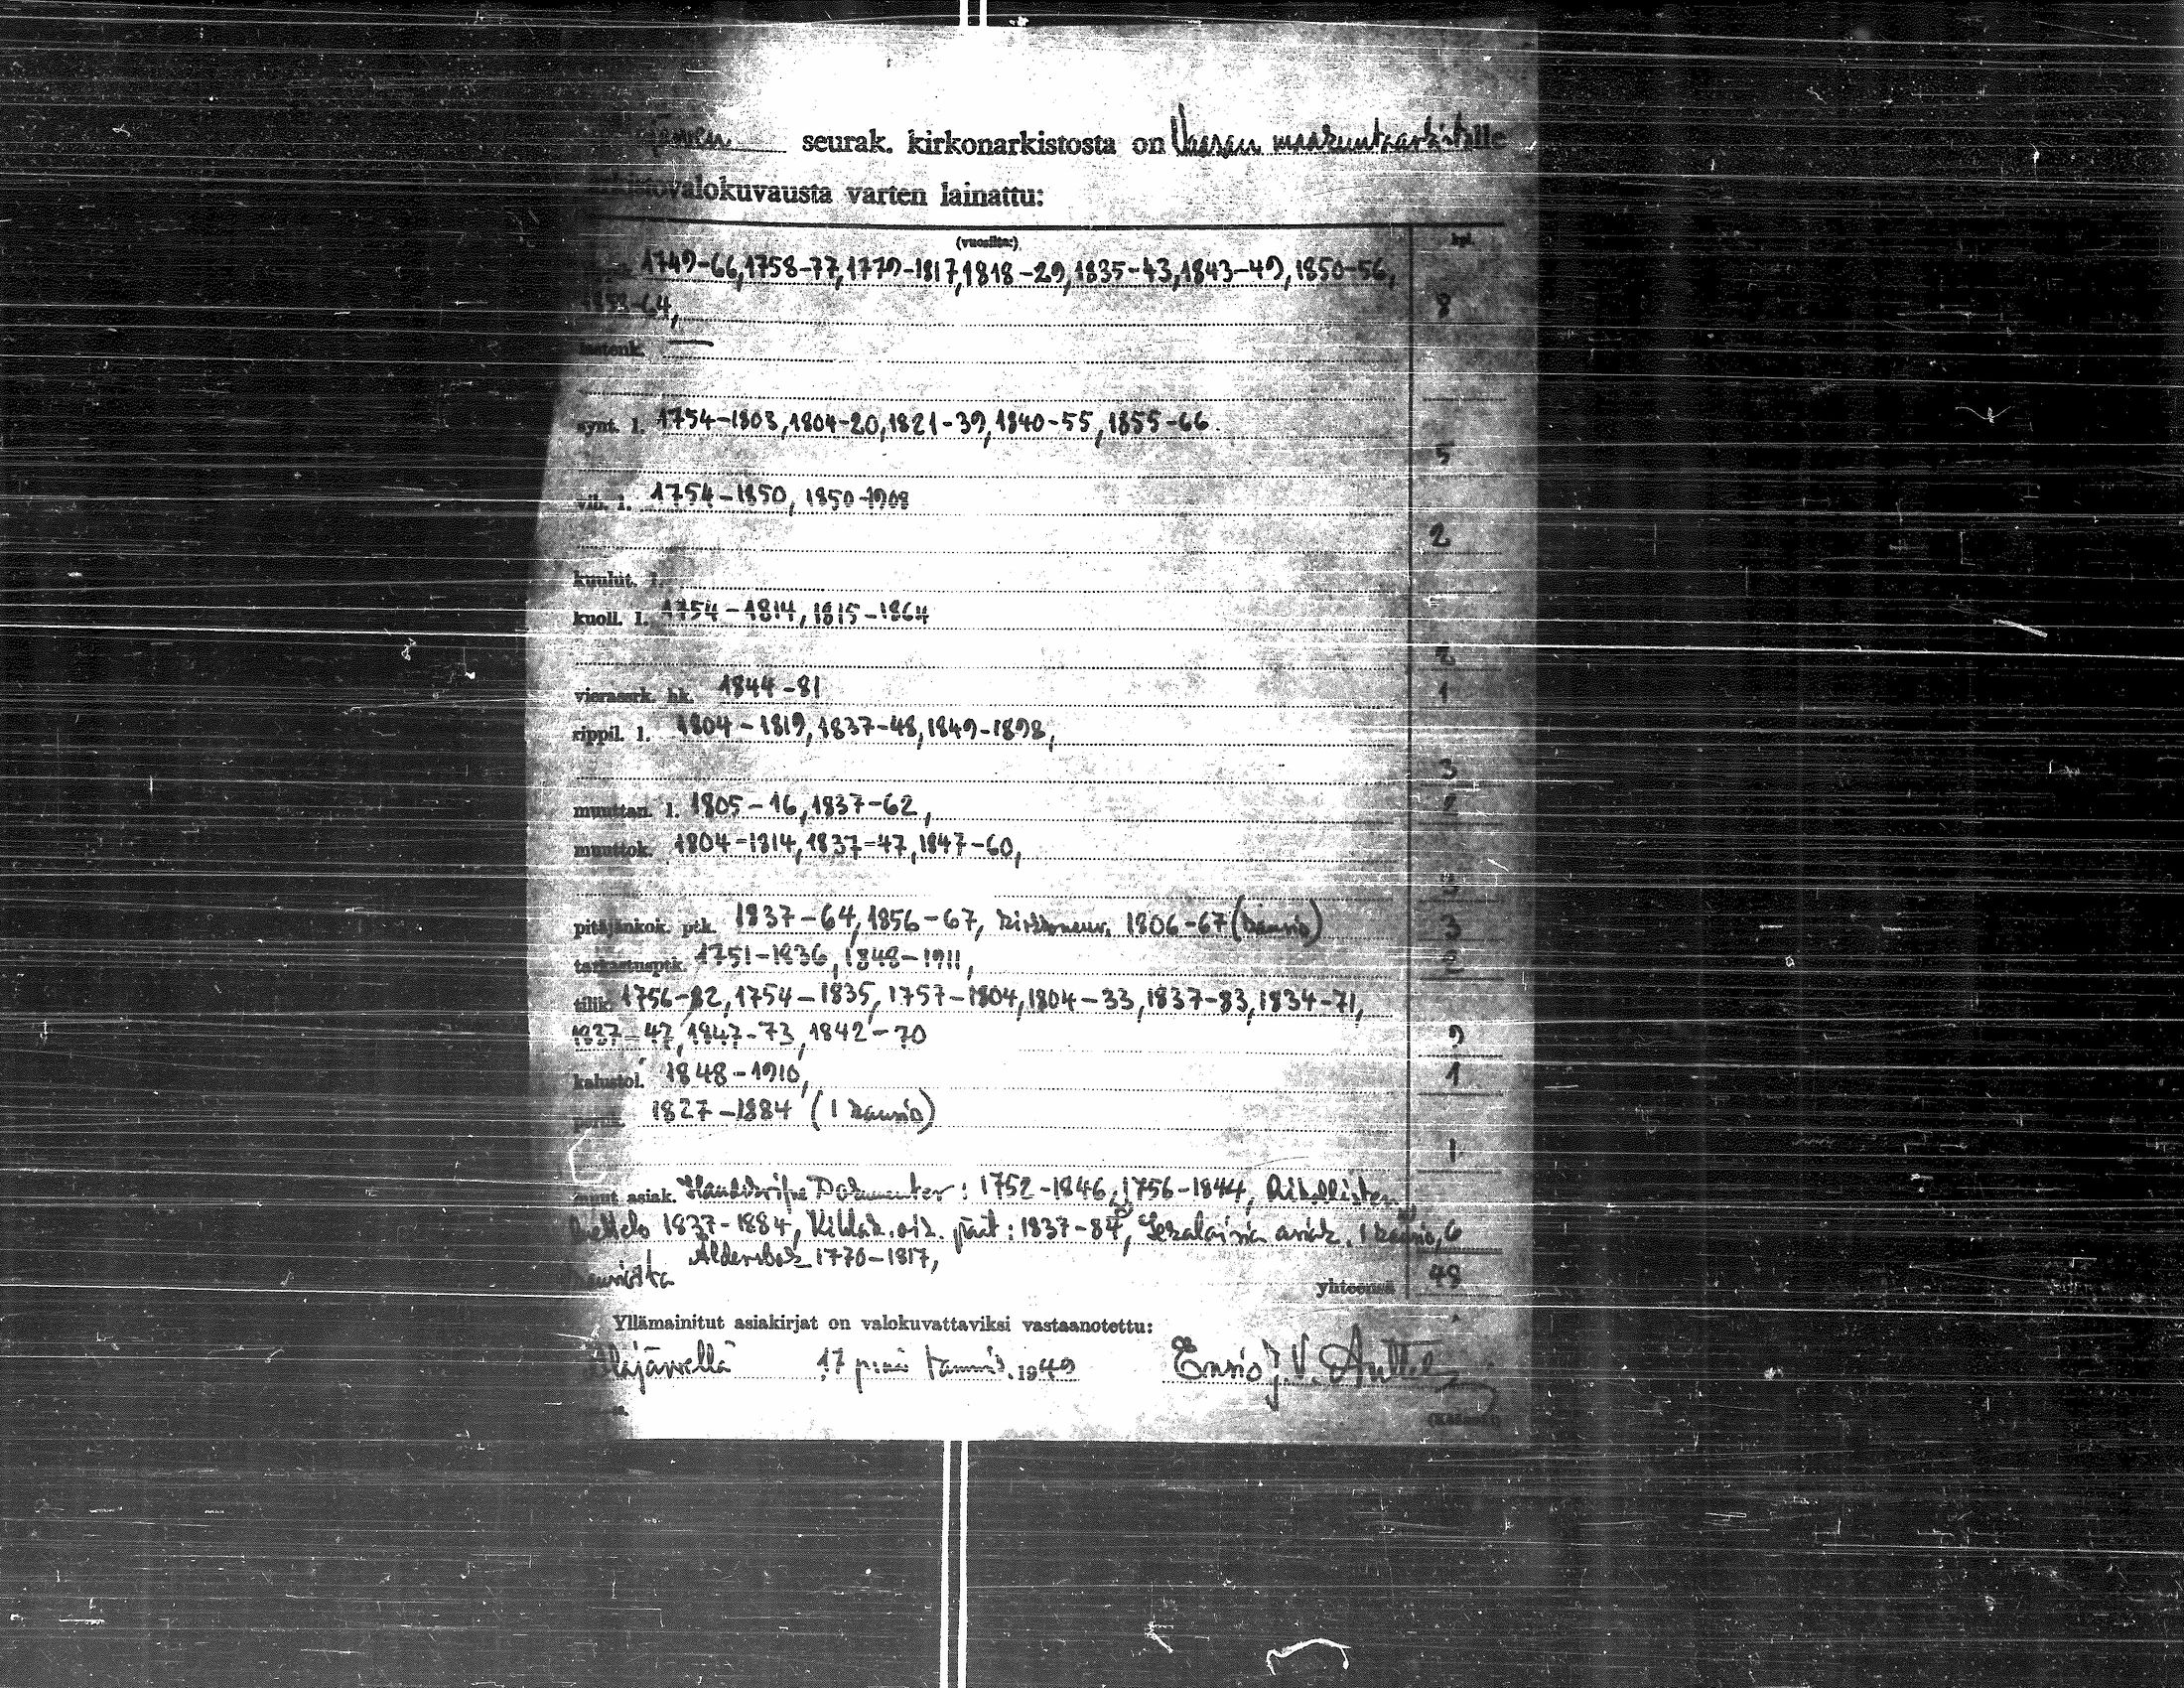 järven seurak. kirkonarkistosta on Vaasan maakuntaarkistolle
arkistovalokuvausta varten lainattu:
(vuosilta:) kpl.
1749-66, 1758-77, 1779-1817, 1818-29, 1835-43, 1843-49, 1850-56,
-64, 8
lastenk. —
synt. l. 1754-1803, 1804-20, 1821-39, 1840-55, 1855-66
5
vih. l. 1754-1850, 1850-1908
2
kuulut. l.
kuoll. l. 1754-1814, 1815-1864
2
vierassrk. hk. 1844-81 1
rippil. l. 1804-1819, 1837-48, 1849-1898,
3
muuttan. l. 1805-16, 1837-62, 2
muuttok. 1804-1814, 1837-47, 1847-60,
3
pitäjänkok. ptk. 1837-64, 1856-67, kirkkoneuv. 1806-67 (kansio) 3
tarkastusptk. 1751-1836, 1848-1911, 2
tilik. 1756-82, 1754-1835, 1757-1804, 1804-33, 1837-83, 1834-71,
1837-47, 1847-73, 1842-70 9
kalustol. 1848-1910, 1
peruk. 1827-1884 (1 kansio)
1
muut asiak. Handskrifne Dokumenter: 1752-1846, 1756-1844,
luettelo 1837-1884, pöit: 1837-84, Sekalaisia asiak. 1 kansio, 6
Åldersbok 1770-1817,
yhteensä 48
Yllämainitut asiakirjat on valokuvattaviksi vastaanotettu:
Alajärvellä 17 p:nä tammik. 1949 Ensio J. V. Anttila